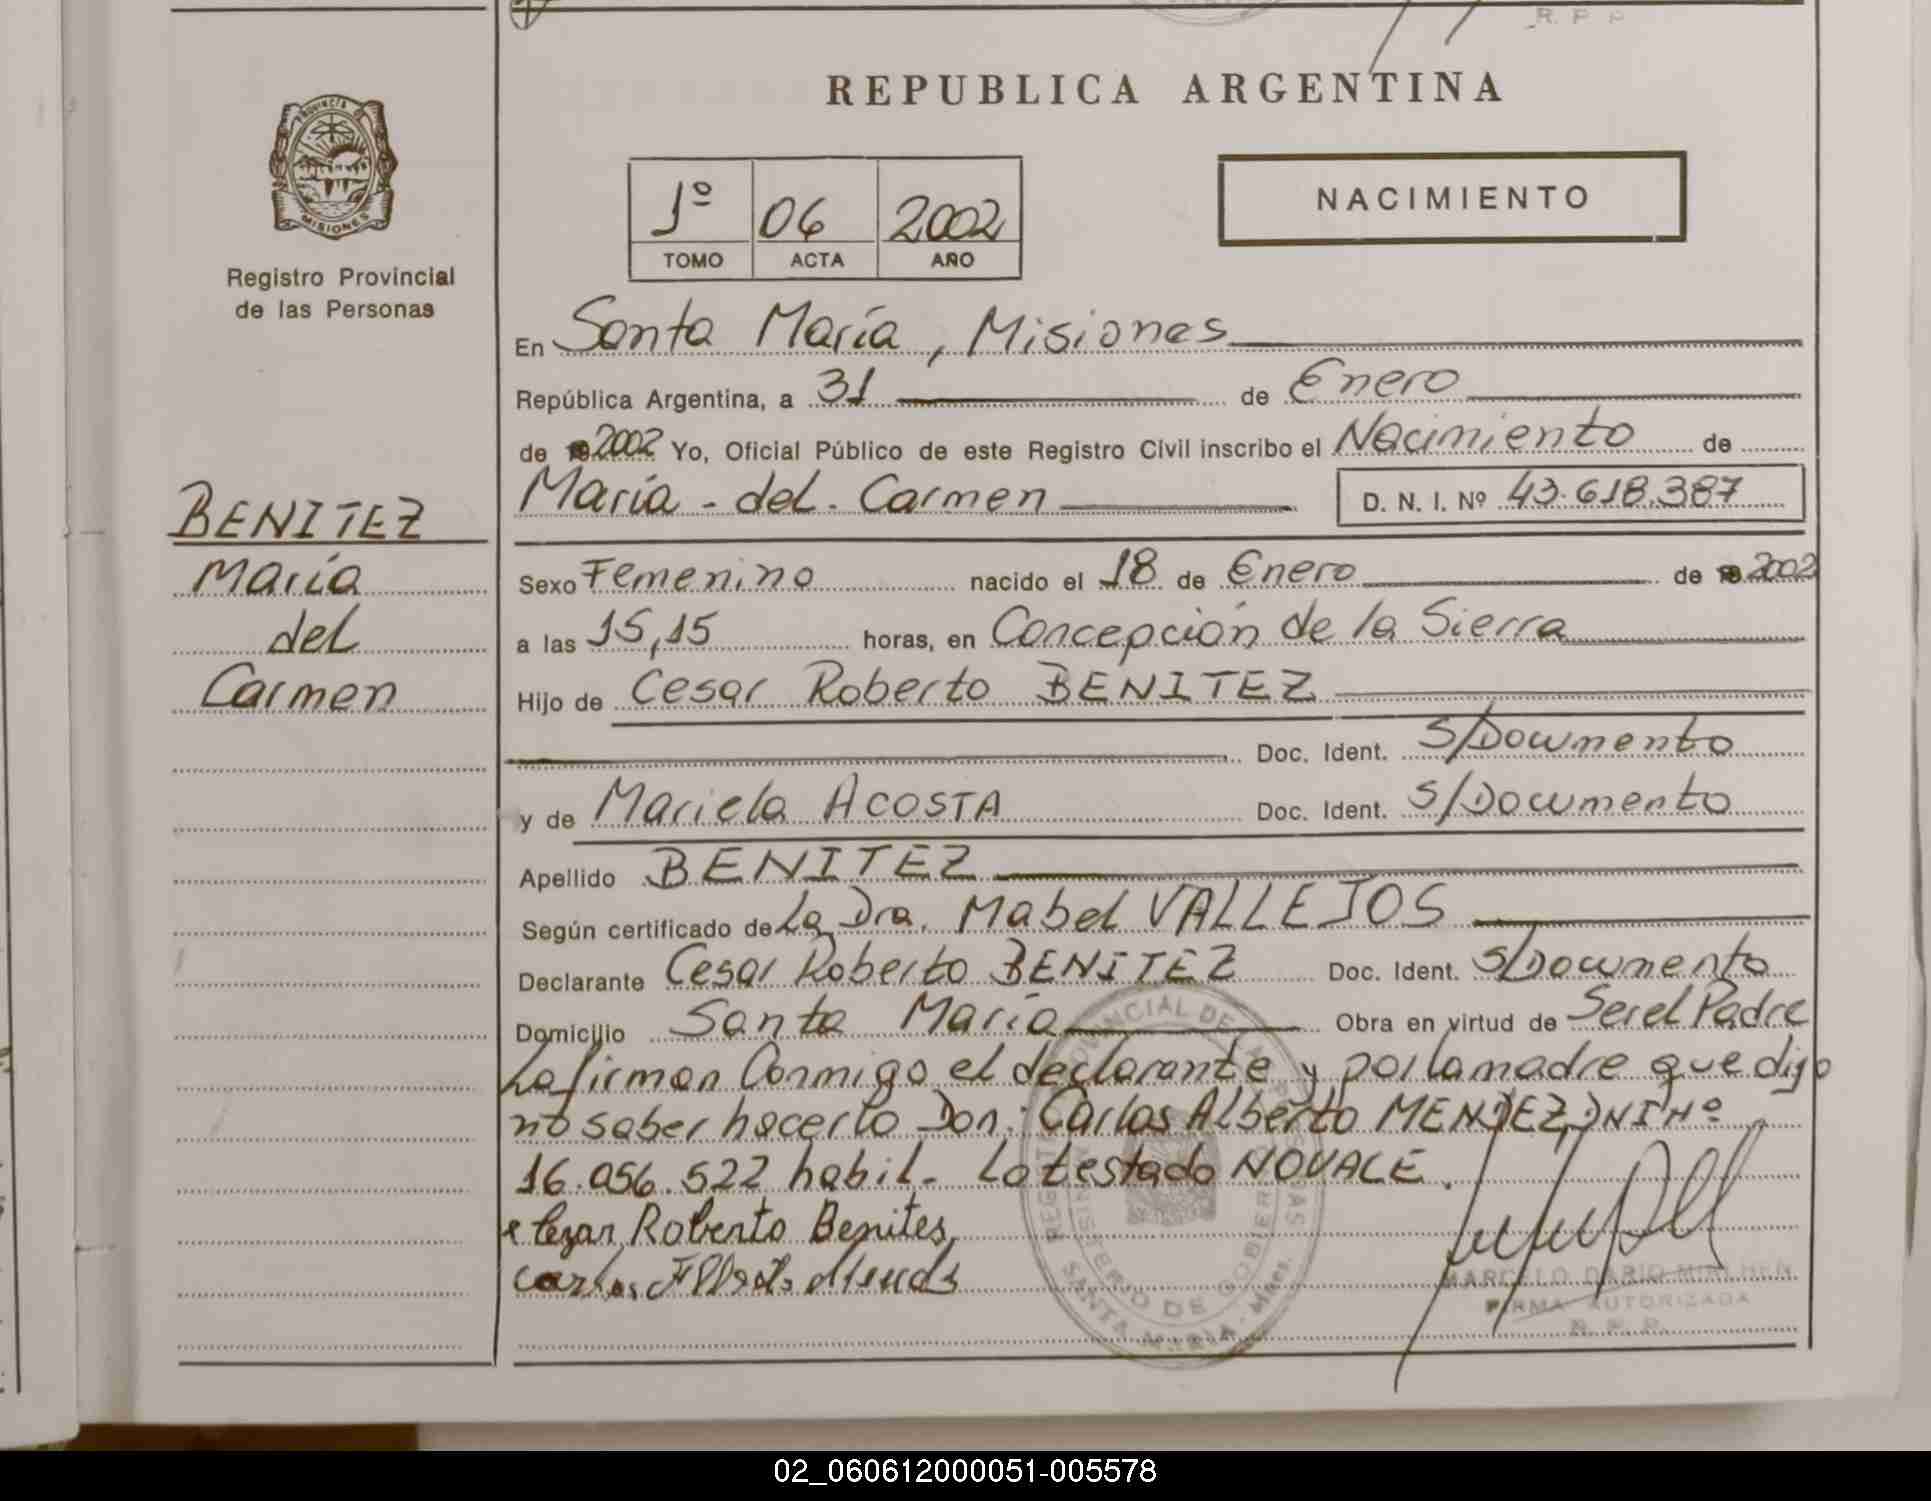 R. P. P.
REPUBLICA ARGENTINA
PROVINCIA DE
MISIONES
Registro Provincial
de las Personas
1º 06 2002
TOMO ACTA AÑO
NACIMIENTO
En Santa María, Misiones
República Argentina, a 31 de Enero
de 2002 Yo, Oficial Público de este Registro Civil inscribo el Nacimiento de
María - del - Carmen D. N. I. Nº 43.618.387
BENITEZ
María
del
Carmen
Sexo Femenino nacido el 18 de Enero de 2002
a las 15,15 horas, en Concepción de la Sierra
Hijo de Cesar Roberto BENITEZ
Doc. Ident. S/Documento
y de Mariela ACOSTA Doc. Ident. S/Documento
Apellido BENITEZ
Según certificado de La Dra. Mabel VALLEJOS
Declarante Cesar Roberto BENITEZ Doc. Ident. S/Documento
Domicilio Santa María Obra en virtud de Ser el Padre
La firman Conmigo el declarante y por la madre que dijo
no saber hacerlo Don: Carlos Alberto MENDEZ, DNI Nº
16.056.522 habil. Lo testado NO VALE.
Cezar Roberto Benites
Carlos
REGISTRO PROVINCIAL DE LAS PERSONAS
MINISTERIO DE GOBIERNO
SANTA MARIA - Mnes.
MARCELO DARIO
FIRMA AUTORIZADA
R. P. P.
02_060612000051-005578